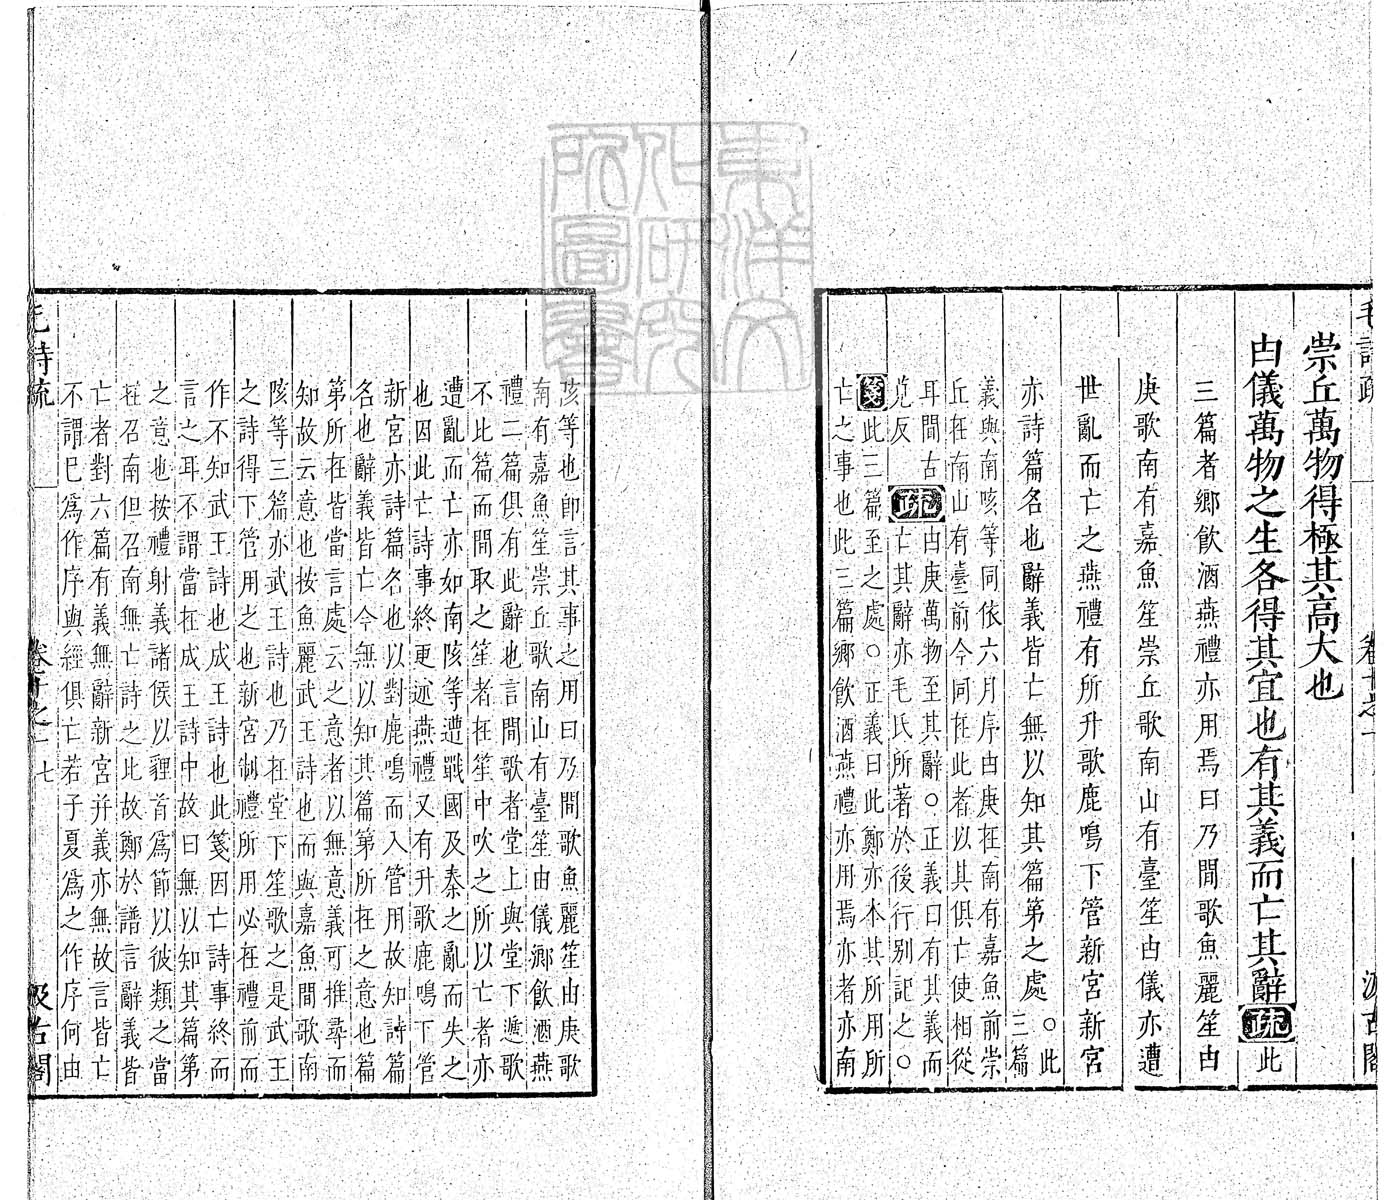 毛詩疏
卷十之一
汲古閣
崇丘萬物得極其高大也
由儀萬物之生各得其宜也有其義而亡其辭疏此
三篇者鄉飲酒燕禮亦用焉曰乃間歌魚麗笙由
庚歌南有嘉魚笙崇丘歌南山有臺笙由儀亦遭
世亂而亡之燕禮有所升歌鹿鳴下管新宮新宮
亦詩篇名也辭義皆亡無以知其篇第之處○此
三篇
義與南陔等同依六月序由庚在南有嘉魚前崇
丘在南山有臺前今同在此者以其俱亡使相從
耳間古
莧反
疏由庚萬物至其辭○正義曰有其義而
亡其辭亦毛氏所著於後行別記之○
箋此三篇至之處○正義曰此鄭亦本其所用所
亡之事也此三篇鄉飲酒燕禮亦用焉亦者亦南
陔等也即言其事之用曰乃間歌魚麗笙由庚歌
南有嘉魚笙崇丘歌南山有臺笙由儀鄉飲酒燕
禮二篇俱有此辭也言間歌者堂上與堂下遞歌
不比篇而間取之笙者在笙中吹之所以亡者亦
遭亂而亡亦如南陔等遭戰國及秦之亂而失之
也因此亡詩事終更述燕禮又有升歌鹿鳴下管
新宮亦詩篇名也以對鹿鳴而入管用故知詩篇
名也辭義皆亡今無以知其篇第所在之意也篇
第所在皆當言處云之意者以無意義可推尋而
知故云意也按魚麗武王詩也而與嘉魚間歌南
陔等三篇亦武王詩也乃在堂下笙歌之是武王
之詩得下管用之也新宮制禮所用必在禮前而
作不知武王詩也成王詩也此箋因亡詩事終而
言之耳不謂當在成王詩中故曰無以知其篇第
之意也按禮射義諸侯以貍首為節以彼類之當
在召南但召南無亡詩之此故鄭於譜言辭義皆
亡者對六篇有義無辭新宮并義亦無故言皆亡
不謂已為作序與經俱亡若子夏為之作序何由
毛詩疏
卷十之一
七
汲古閣
東洋文化研究所圖書